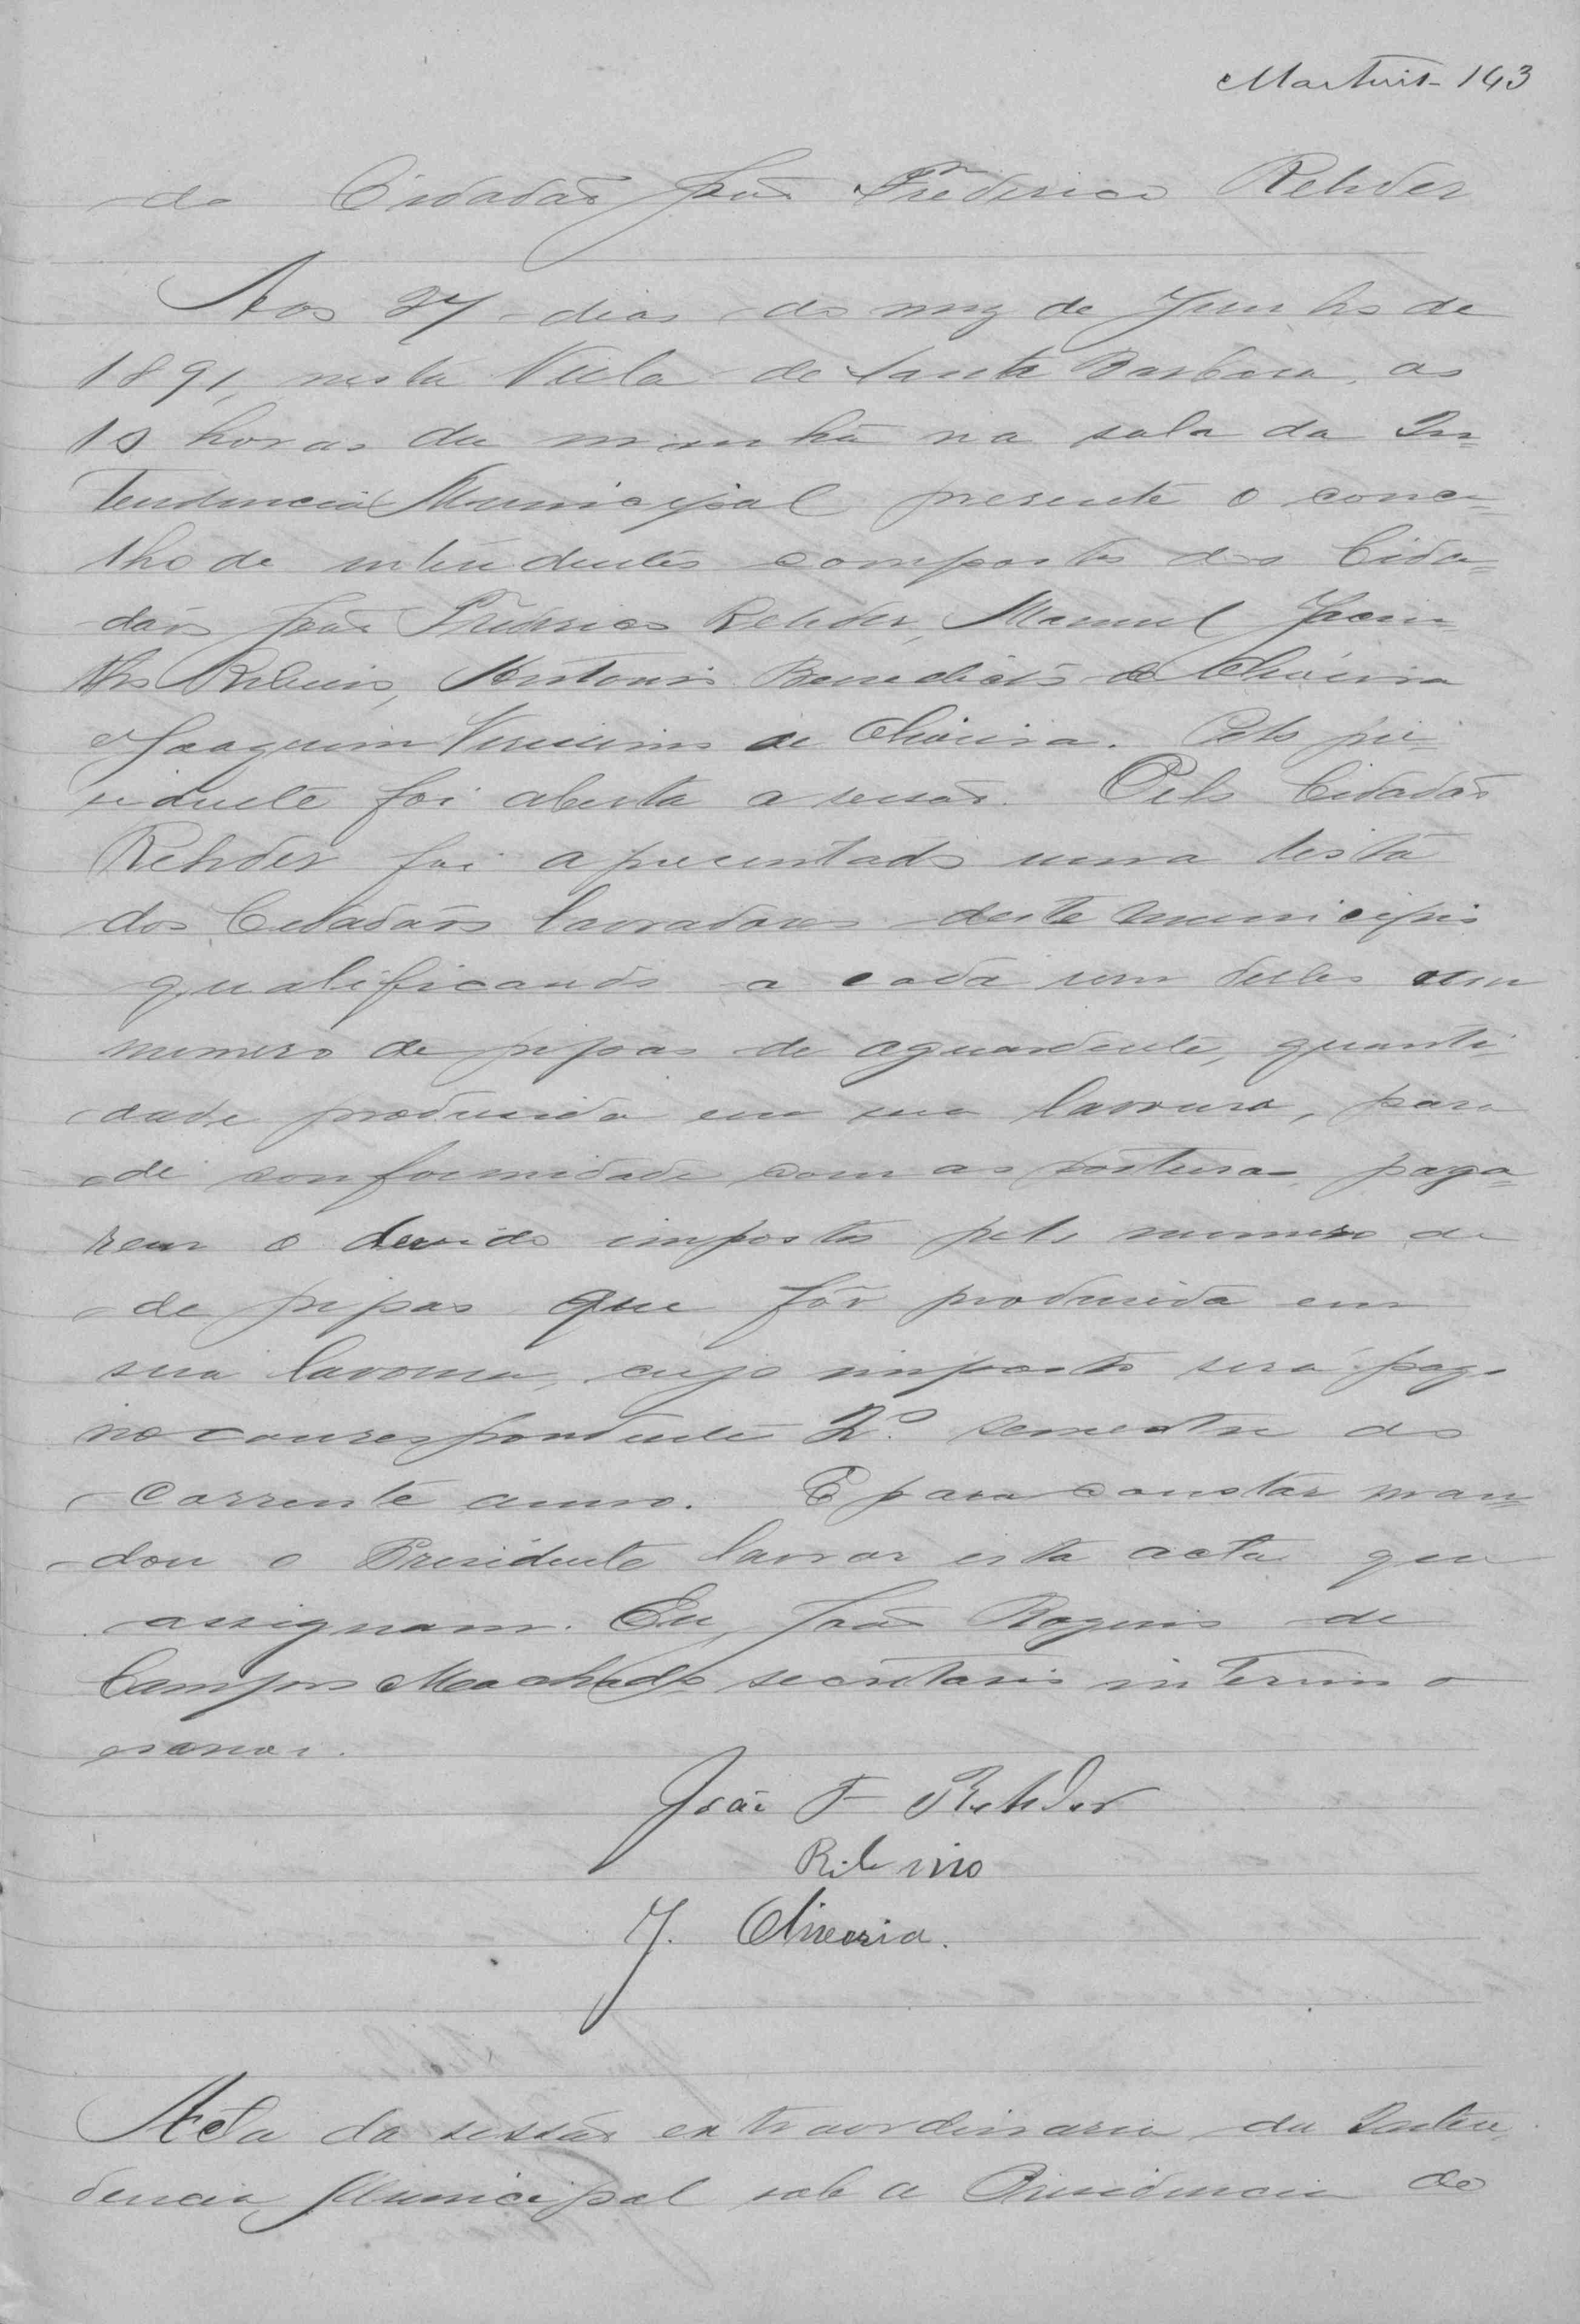 Martins 143
do Cidadão João Frederico Rehder
Aos 27 dias do mez de Junho de
1891, nesta Villa de Santa Barbara, as
10 horas da manhã na sala da In=
tendencia Municipal presente o conce=
lho de intendentes composto dos Cida=
dãos João Frederico Rehder, Manuel Jacin
tho Ribeiro, Antonio Benedicto de Oliveira
e Joaquim Verissimo de Oliveira. Pelo pre=
sidente foi aberta a sessão. Pelo Cidadão
Rehder foi apresentado uma lista
dos Cidadãos lavradores deste municipio
qualificando a cada um delles um
numero de pipas de aguardente, quanti
dade produzida em sua lavoura, para
de conformidade com as posturas paga=
rem o devido imposto pelo numero de
de pipas que fôr produzida em
sua lavoura, cujo imposto será pago
no correspondente 2º semestre do
corrente anno. E para constar man=
dou o Presidente lavrar esta acta que
assignam. Eu, João Rogerio de
Campos Machado secretario interino o
escrevi.
João F Rehder
Ribeiro
J. Oliveira.
Acta da sessão extraordinaria da Inten
dencia Municipal sob a Presidencia do